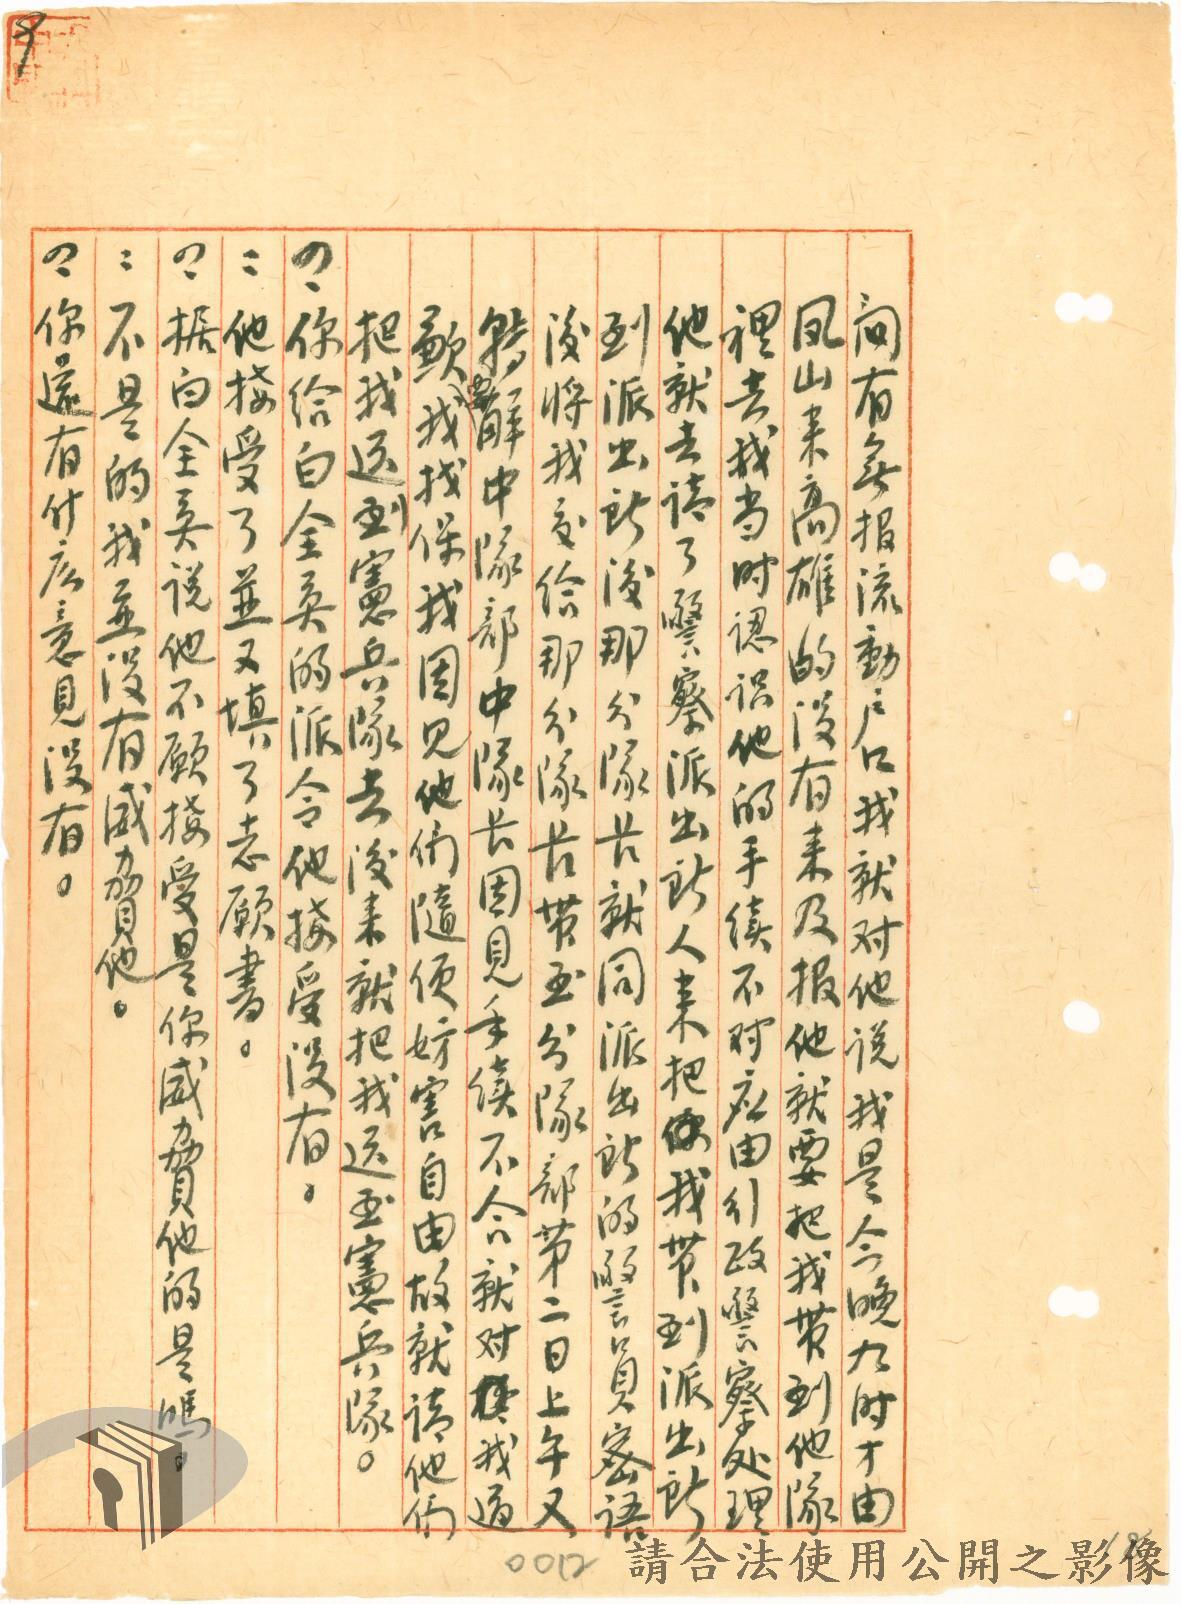 問有無报流動户口我就对他说我是今晚九时才由
凤山来高雄的没有来及报他就要把我带到他隊
裡去我当时認识他的手续不对应由行政警察处理
他就去請了警察派出所人来把我带到派出所
到派出所後那分隊长就同派出所的警員密語
後将我交给那分隊长带至分隊部第二日上午又
轉解中隊部中隊长因見手续不合就对我道
歉我找保我因见他们随便妨害自由故就請他们
把我送到憲兵隊去後来就把我送至憲兵隊。
问：你给白全英的派令他接受没有。
：他接受了並又填了志願書。
问：据白全英说他不願接受是你威脅他的是嗎。
：不是的我並没有威脅他。
问：你還有什么意見没有。
0012
請合法使用公開之影像